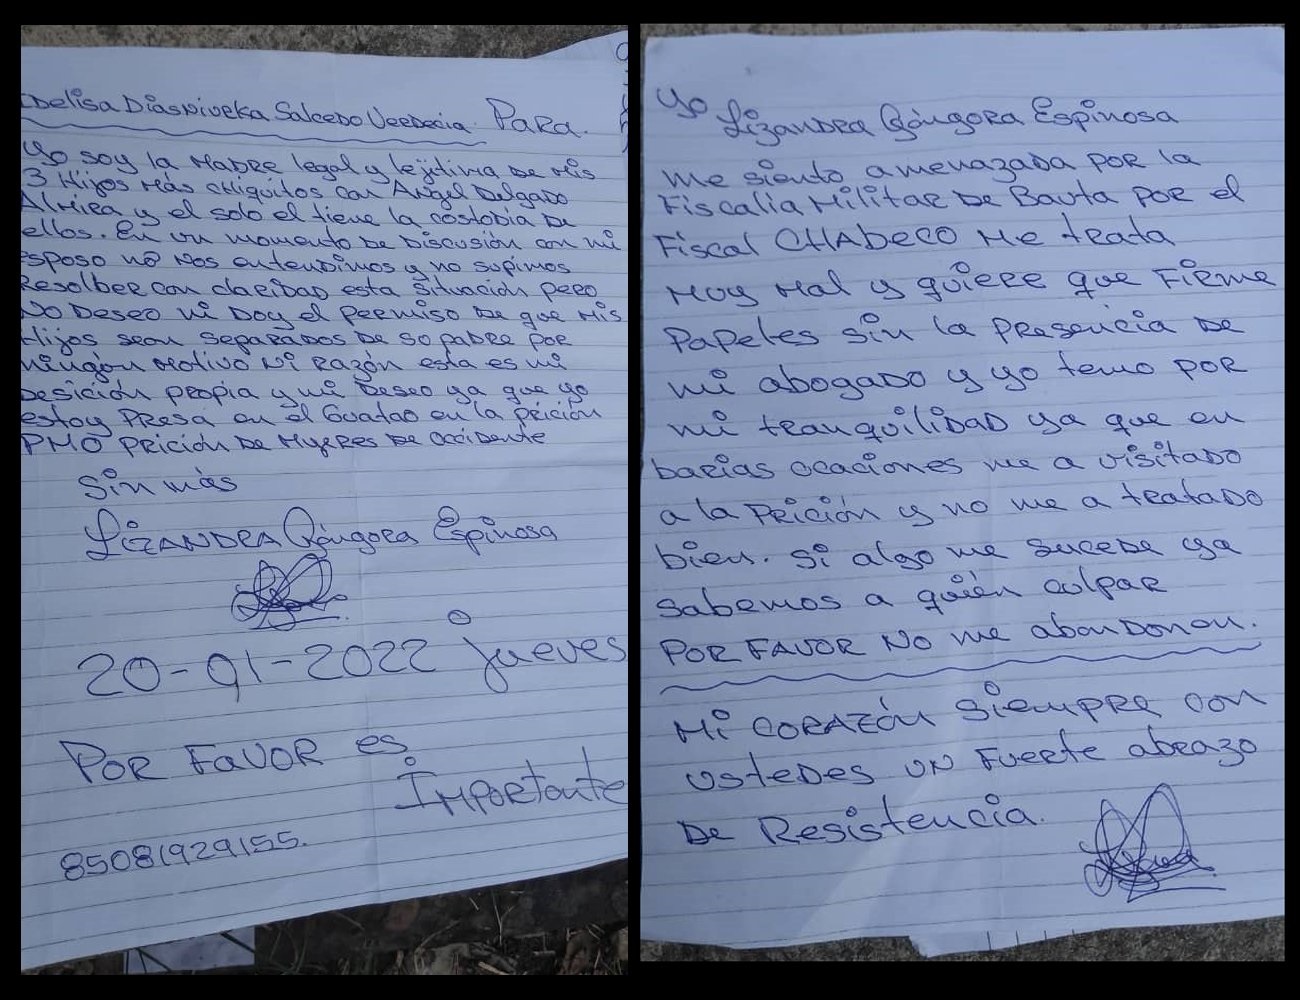 Idelisa Diasniveka Salcedo Verdecia Para.
Yo soy la Madre legal y lejitima de mis
3 Hijos más chiquitos con Angel Delgado
Almira y el solo el tiene la costodia de
ellos. En un momento de discusión con mi
esposo no nos entendimos y no supimos
Resolber con claridad esta situación pero
No Deseo ni Doy el permiso de que mis
Hijos sean separados de so padre por
ningún motivo ni razón esta es mi
Desición propia y mi deseo ya que yo
estoy Presa en el Guatao en la prición
PMO Prición de Mujeres de occidente
Sin más
Lizandra Góngora Espinosa
20-01-2022 jueves
Por Favor es
Importante
85081929155.
Yo Lizandra Góngora Espinosa
me siento amenazada por la
Fiscalia Militar de Bauta por el
Fiscal CHAbeco Me trata
Muy mal y quiere que Firme
Papeles sin la presencia de
mi abogado y yo temo por
mi tranquilidad ya que en
barias ocaciones me a visitado
a la Prición y no me a tratado
bien. si algo me sucede ya
sabemos a quién culpar
POR FAVOR NO me abandonen.
Mi CORAZÓN siempre con
ustedes un Fuerte abrazo
De Resistencia.